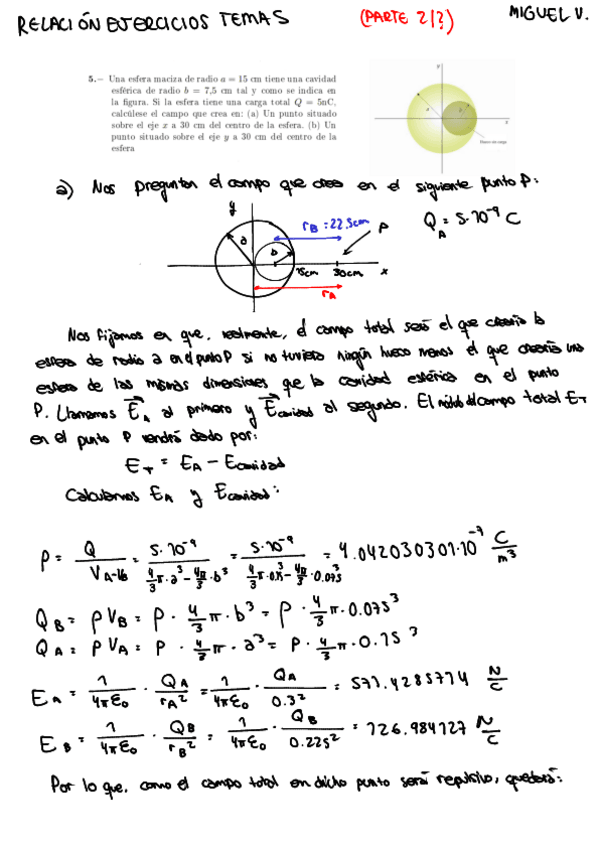 RELACIÓN EJERCICIOS TEMA 5 (PARTE 2/2) MIGUEL V.
5.– Una esfera maciza de radio a = 15 cm tiene una cavidad
esférica de radio b = 7,5 cm tal y como se indica en
la figura. Si la esfera tiene una carga total Q = 5nC,
calcúlese el campo que crea en: (a) Un punto situado
sobre el eje x a 30 cm del centro de la esfera. (b) Un
punto situado sobre el eje y a 30 cm del centro de la
esfera
y
a
x
a) Nos preguntan el campo que crea en el siguiente punto P:
y
r_B = 22.5cm
P
Q_A = 5·10^-9 C
a
b
15cm 30cm x
r_A
Nos fijamos en que, realmente, el campo total será el que crearía la
esfera de radio a en el punto P si no tuviera ningún hueco menos el que crearía una
esfera de las mismas dimensiones que la cavidad esférica en el punto
P. Llamamos E_A al primero y E_cavidad al segundo. El módulo del campo total E_T
en el punto P vendrá dado por:
E_T = E_A - E_cavidad
Calculamos E_A y E_cavidad:
ρ = Q / V_A-V_b = 5·10^-9 / (4/3 π·a^3 - 4/3 π·b^3) = 5·10^-9 / (4/3 π·0.15^3 - 4/3 π·0.075^3) = 4.042030301·10^-7 C/m^3
Q_B = ρ V_B = ρ · 4/3 π · b^3 = ρ · 4/3 π · 0.075^3
Q_A = ρ V_A = ρ · 4/3 π · a^3 = ρ · 4/3 π · 0.15^3
E_A = 1/4πε_0 · Q_A/r_A^2 = 1/4πε_0 · Q_A/0.3^2 = 571.4285714 N/C
E_B = 1/4πε_0 · Q_B/r_B^2 = 1/4πε_0 · Q_B/0.225^2 = 126.984127 N/C
Por lo que, como el campo total en dicho punto será repulsivo, quedará: